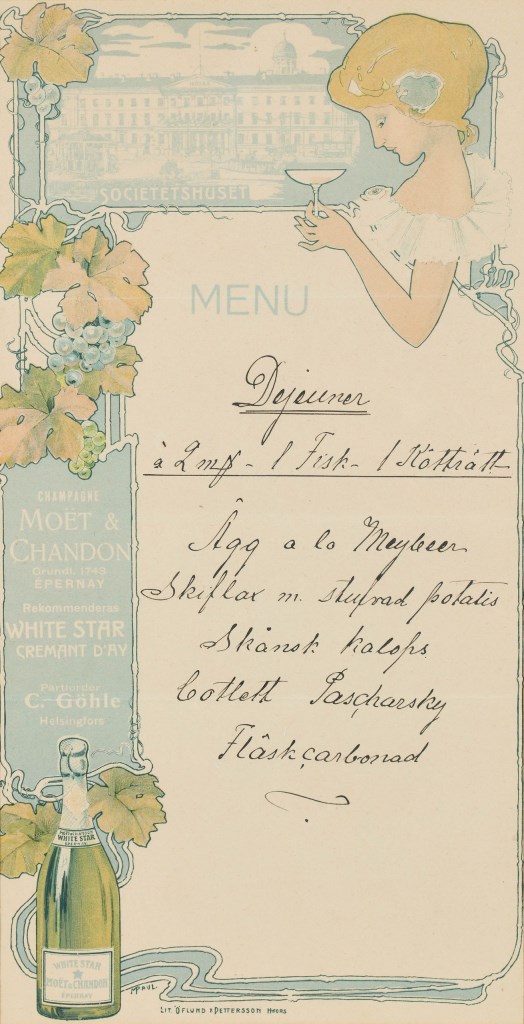 SOCIETETSHUSET
MENU
Dejeuner
à 2 mk - 1 Fisk - 1 Kötträtt
Ägg a la Meybeer
Skiflax m. stufvad potatis
Skånsk kalops
Cotlett Pascharsky
Fläskcarbonad
CHAMPAGNE
MOËT &
CHANDON
Grundl. 1743
ÉPERNAY
Rekommenderas
WHITE STAR
CREMANT D'AY
Partiorder
C. Göhle
Helsingfors
WHITE STAR
WHITE STAR
MOËT & CHANDON
ÉPERNAY
LIT. ÖFLUND & PETTERSSON H:FORS